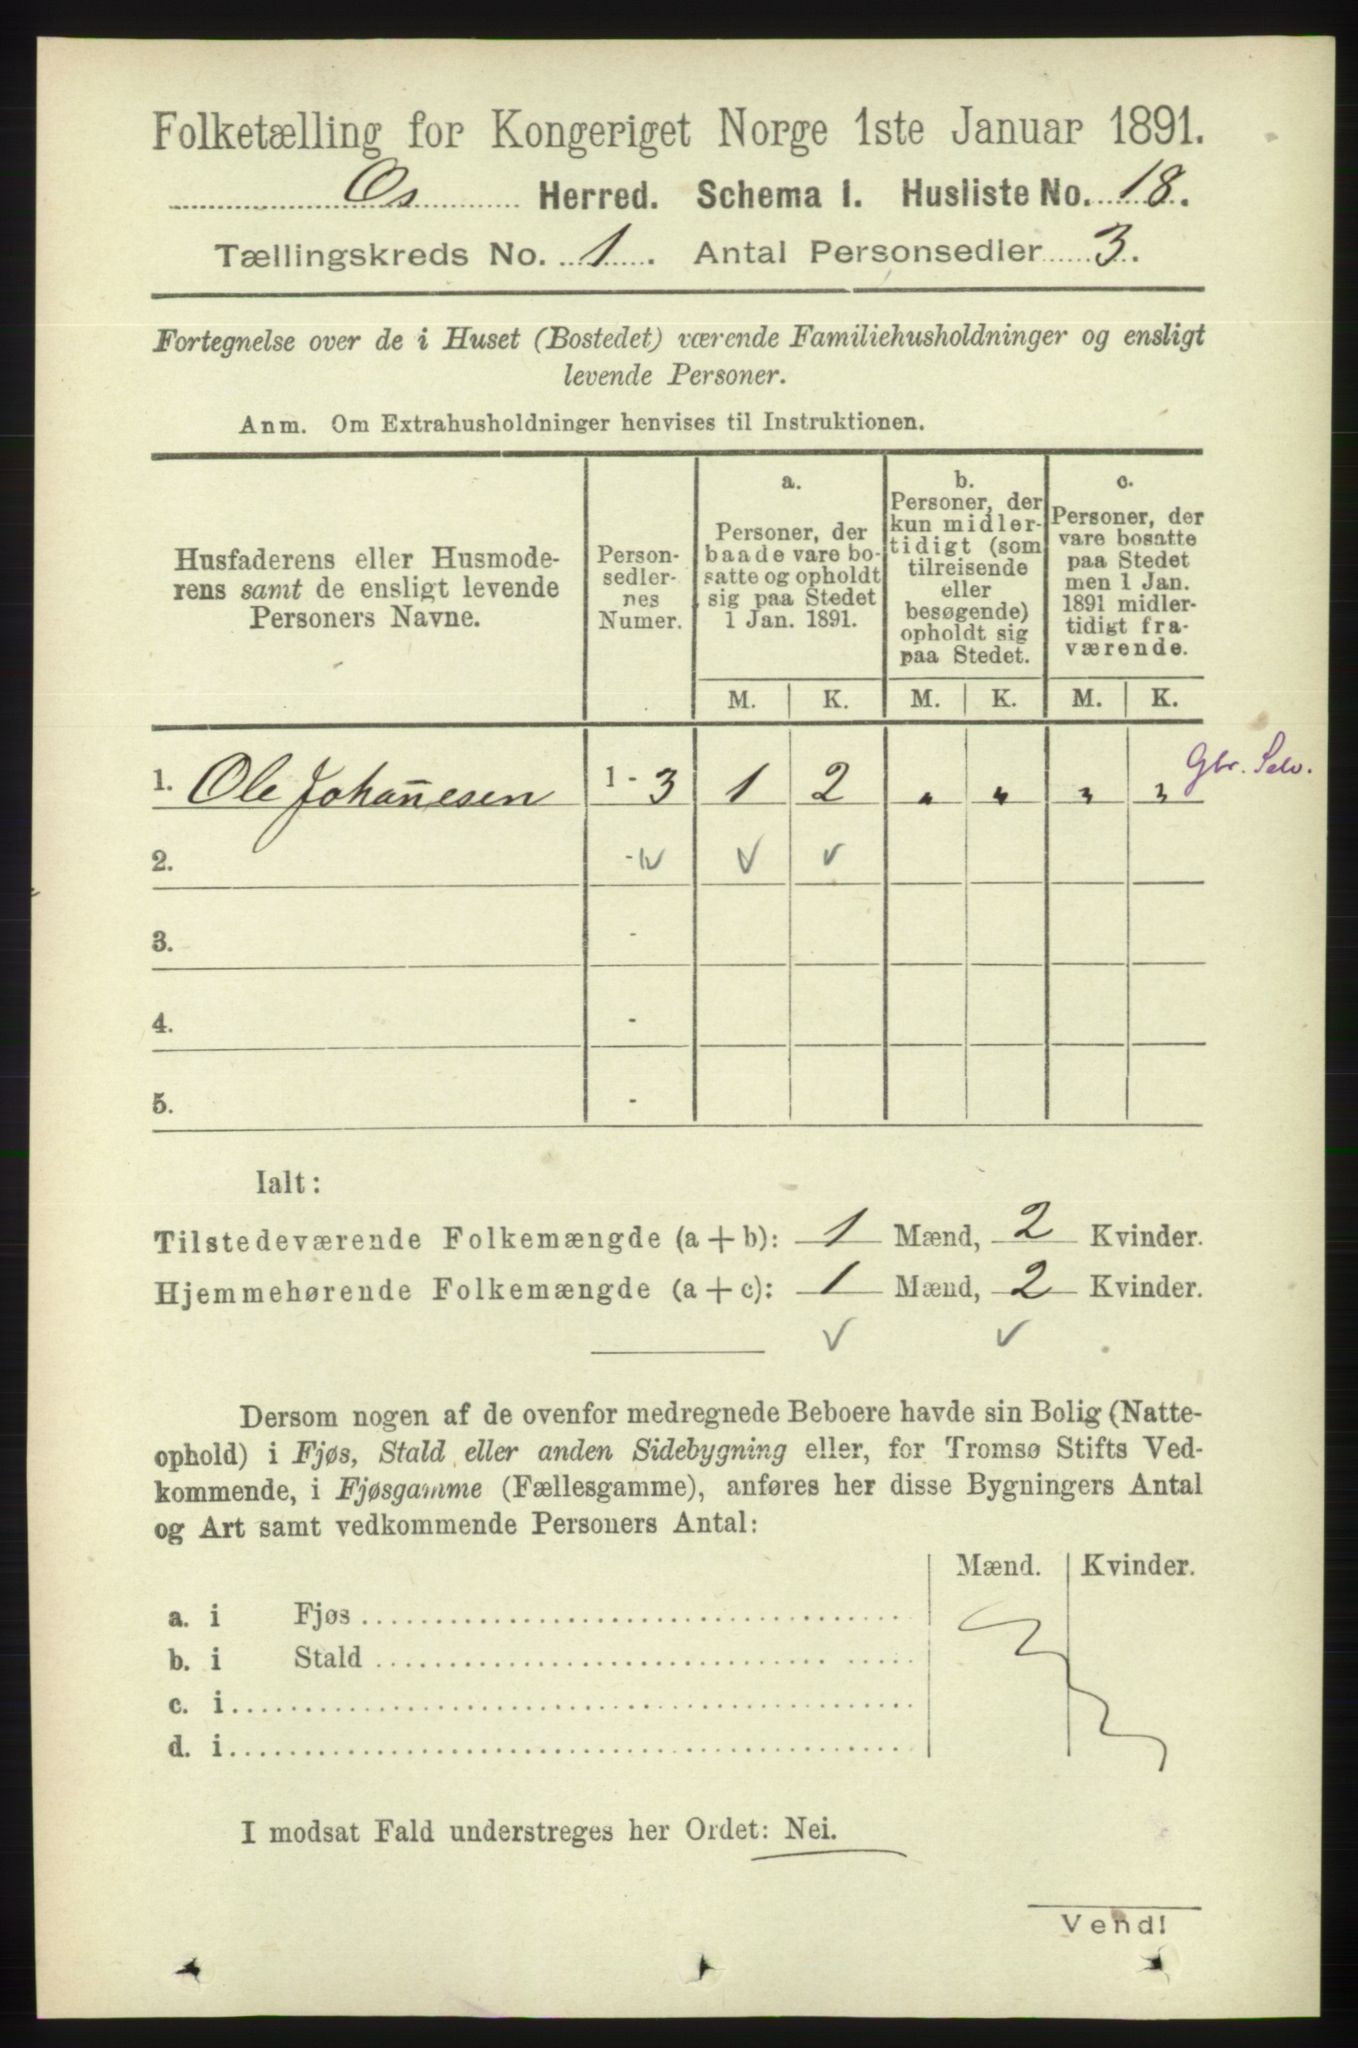 Folketælling for Kongeriget Norge 1ste Januar 1891.
Os Herred. Schema I. Husliste No. 18.
Tællingskreds No. 1. Antal Personsedler 3.
Fortegnelse over de i Huset (Bostedet) værende Familiehusholdninger og ensligt
levende Personer.
Anm. Om Extrahusholdninger henvises til Instruktionen.
Husfaderens eller Husmode-
rens samt de ensligt levende
Personers Navne.
Person-
sedler-
nes
Numer.
a.
Personer, der
baade vare bo-
satte og opholdt
sig paa Stedet
1 Jan. 1891.
b.
Personer, der
kun midler-
tidigt (som
tilreisende
eller
besøgende)
opholdt sig
paa Stedet.
c.
Personer, der
vare bosatte
paa Stedet
men 1 Jan.
1891 midler-
tidigt fra-
værende.
M. K. M. K. M. K.
1. Ole Johan̄esen 1 - 3 1 2 „ „ „ „ Gbr. Selv.
2. -
3. -
4. -
5. -
Ialt:
Tilstedeværende Folkemængde (a + b): 1 Mænd, 2 Kvinder.
Hjemmehørende Folkemængde (a + c): 1 Mænd, 2 Kvinder.
Dersom nogen af de ovenfor medregnede Beboere havde sin Bolig (Natte-
ophold) i Fjøs, Stald eller anden Sidebygning eller, for Tromsø Stifts Ved-
kommende, i Fjøsgamme (Fællesgamme), anføres her disse Bygningers Antal
og Art samt vedkommende Personers Antal:
Mænd. Kvinder.
a. i Fjøs
b. i Stald
c. i
d. i
I modsat Fald understreges her Ordet: Nei.
Vend!